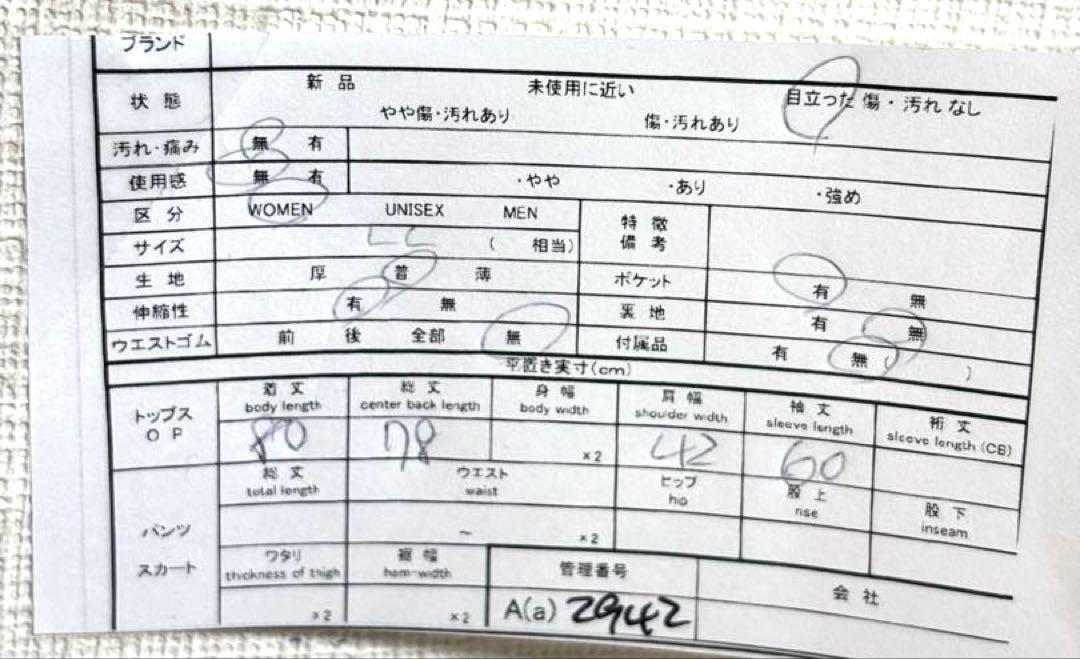 ブランド
状態 新品 未使用に近い 目立った傷・汚れなし
やや傷・汚れあり 傷・汚れあり
汚れ・痛み 無 有
使用感 無 有 ・やや ・あり ・強め
区分 WOMEN UNISEX MEN 特徴備考
サイズ LL ( 相当)
生地 厚 普 薄 ポケット 有 無
伸縮性 有 無 裏地 有 無
ウエストゴム 前 後 全部 無 付属品 有 無( )
平置き実寸(cm)
トップス OP 着丈 総丈 身幅 肩幅 袖丈 裄丈
body length center back length body width shoulder width sleeve length sleeve length (CB)
80 78 ×2 42 60
総丈 ウエスト ヒップ 股上 股下
total length waist hip rise inseam
パンツ ～ ×2
スカート ワタリ 裾幅 管理番号 会社
thickness of thigh hem-width
×2 ×2 A(a) 2942